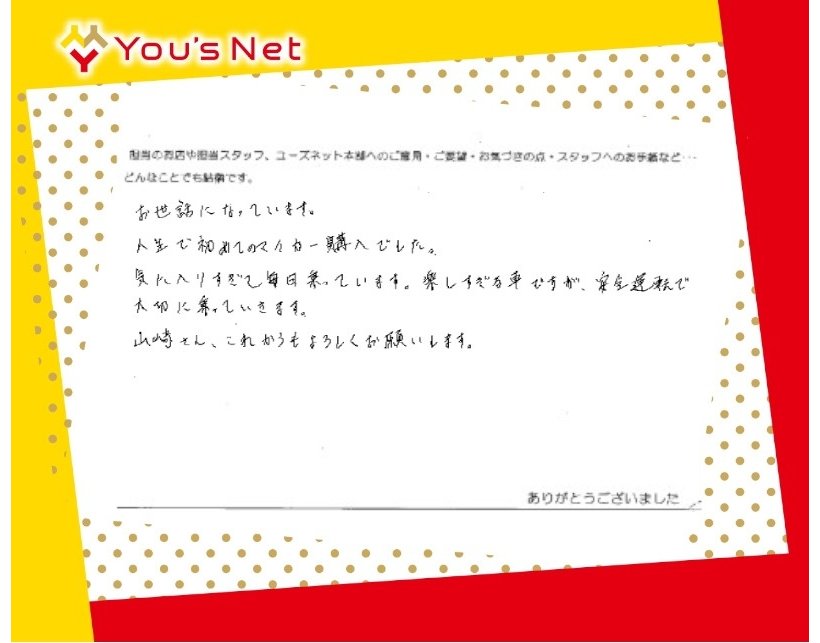 You's Net
担当のお店や担当スタッフ、ユーズネット本部へのご意見・ご要望・お気づきの点・スタッフへのお手紙など…
どんなことでも結構です。
お世話になっています。
人生で初めてのマイカー購入でした。
気に入りすぎて毎日乗っています。楽しすぎる車ですが、安全運転で
大切に乗っていきます。
山崎さん、これからもよろしくお願いします。
ありがとうございました